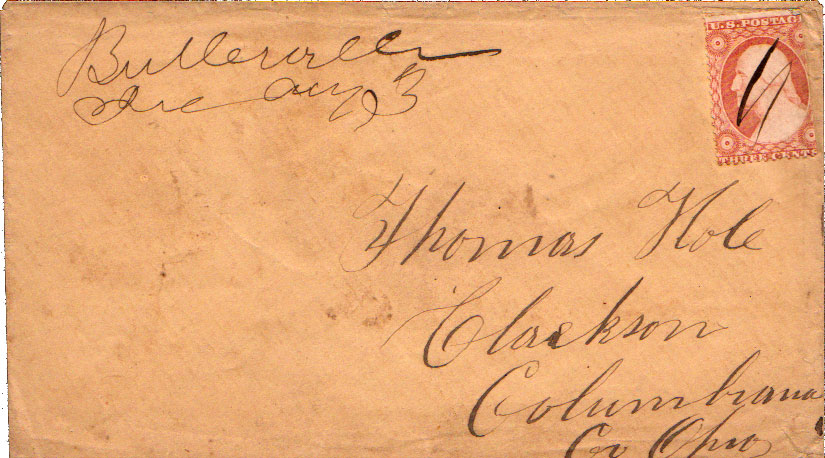 Butlerville
Aug 3
U.S. POSTAGE
THREE CENTS
Thomas Hole
Clarkson
Columbiana
Co Ohio